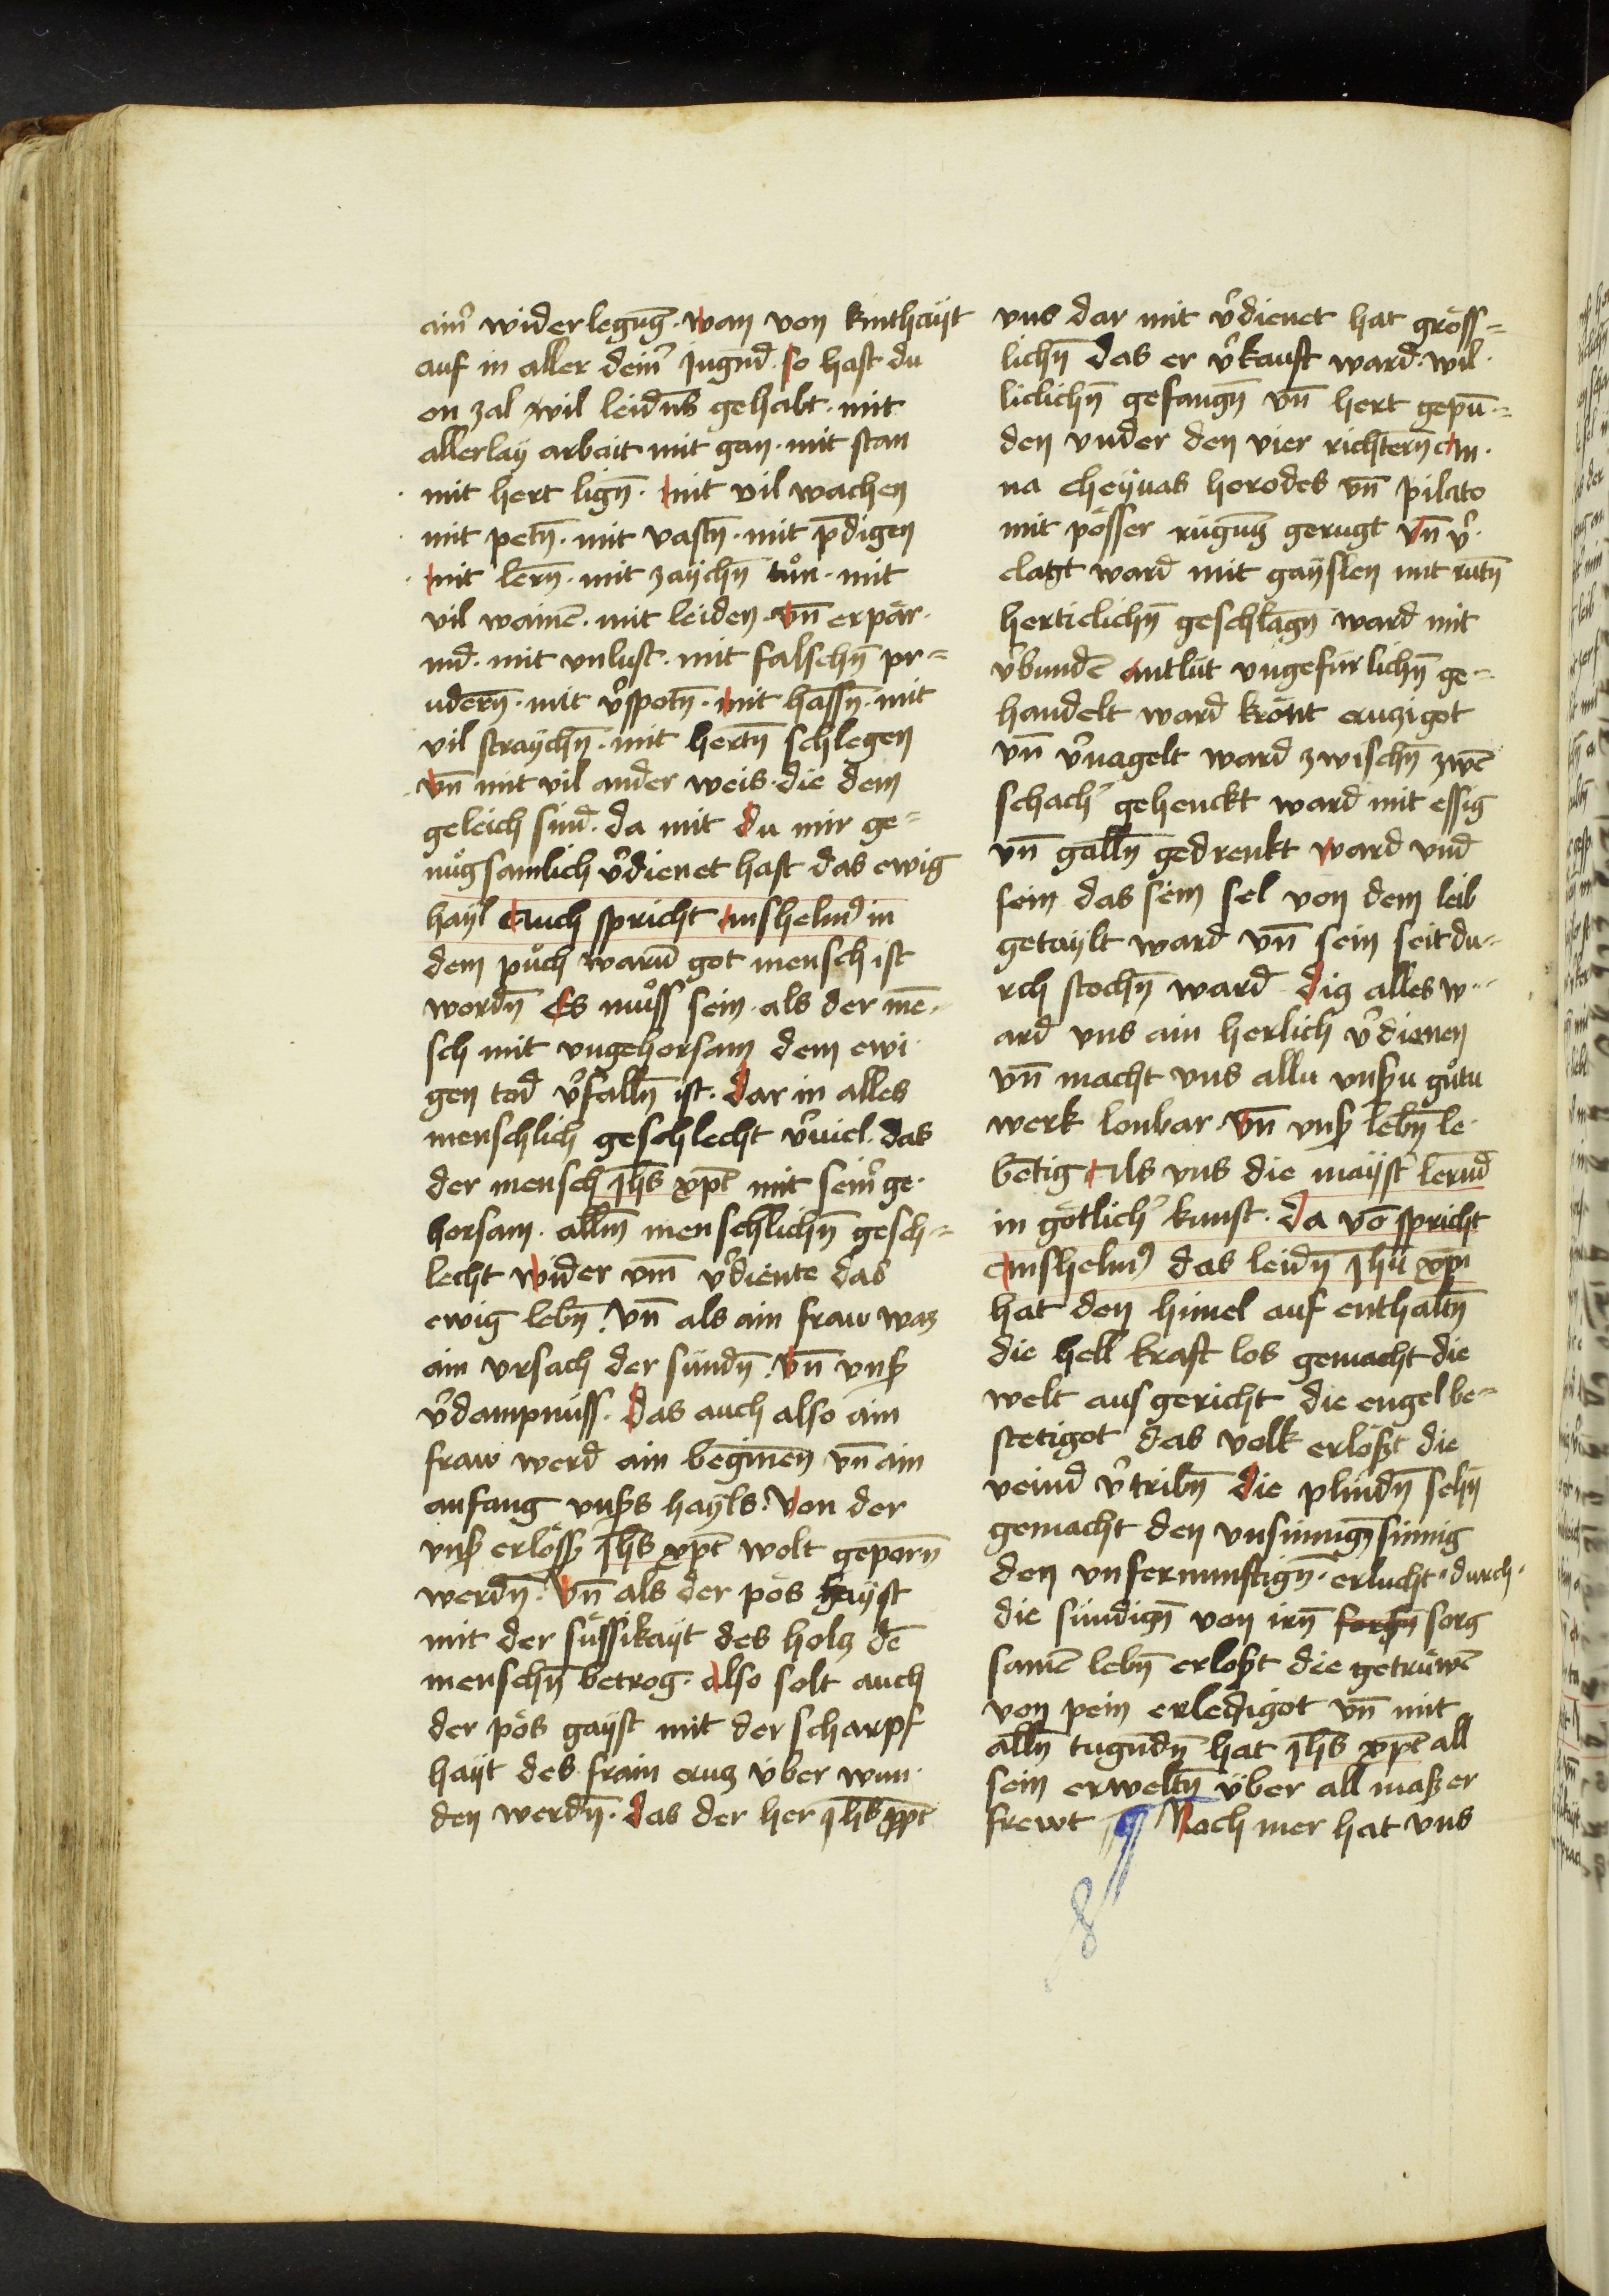 aim̄ widerlegūg · wan von kinthaÿt
auf in aller deim̄ jugnd̄ · so hast du
on zal wil leidn̄s gehabt · mit
allerlaÿ arbait mit gan · mit stan
mit hert lign̄ · mit vil wachen
mit petn̄ · mit vastn̄ · mit p̄digen
mit lern̄ · mit zaÿchn̄ tůn · mit
vil wainē · mit leiden · vn̄ erpär·
md̄ · mit vnlust · mit falschn̄ pr=
udern̄ · mit v̄spotn̄ · mit hassn̄ · mit
vil straÿchn̄ · mit hertn̄ schlegen
vn̄ mit vil ander weis · die dem
geleich sind · da mit du mir ge=
nůgsamlich v̄dienet hast das ewig
haÿl Auch spricht Anshelm9 in
dem půch warū got mensch ist
wordn̄ Es můss sein · als der mē·
sch mit vngehorsam dem ewi·
gen tod v̄falln̄ ist · dar in alles
menschlich geschlecht v̄uiel · das
der mensch jhs xp̄c mit seim̄ ge·
horsam · allm̄ menschlichn̄ gesch=
lecht wider vm̄ v̄diente das
ewig lebn̄ · Vn̄ als ain fraw waz
ain vrsach der sündn̄ · Vn̄ vnß
v̄dampnüss · Das auch also ain
fraw werd ain begīnen̄ vn̄ ain
anfang vnßs haÿls · Von der
vnß erlöss jhs xp̄c wolt geporn̄
werdn̄ · Vn̄ als der pös gaÿst
mit der süssikaÿt des holz dē
menschn̄ betrog · Also solt auch
der pös gaÿst mit der scharpf
haÿt des frain cruz über wun·
den werdn̄ · das der her jhs xp̄c
vns dar mit v̄dienet hat gröss=
lichn̄ das er v̄kauft ward · wil·
liclichn̄ gefangn̄ vn̄ hert gepū=
den vnder den vier richtern̄ An·
na cheÿuas herodes vn̄ pilato
mit pösser rügūg gerugt vn̄ v̄·
clagt ward mit gaÿslen mit rutn̄
herticlichn̄ geschlagn̄ ward mit
v̄bundē antlüt vngefürlichn̄ ge=
handelt ward krönt cruzigot
vn̄ v̄nagelt ward zwischn̄ zwē
schach̄ gehenckt ward mit essig
vn̄ galln̄ gedrenkt ward vnd
sein das sein sel von dem leib
getaÿlt ward vn̄ sein seit du=
rch stochn̄ ward diz alles w=
ard vns ain herlich v̄dienen
vn̄ macht vns allu vnßu gůtu
werk lonbar · Vn̄ vnß lebn̄ le·
bētig Als vns die maÿst̄ lernd
in götlich̄ kunst · da vō spricht
Anshelm9 das leidn̄ jhū xp̄i
hat den himel auf enthaltn̄
die hell kraft los gemacht die
welt ausgericht die engel be=
stetigot das volk erlößt die
veind v̄tribn̄ die plindn̄ sehn̄
gemacht den vnsinnign̄ sinnig
den vnfernunftign̄ · erlucht · durch ·
die sündign̄ von irn̄ sorg
samē lebn̄ erlost die getrüwē
von pein erledigot vn̄ mit
alln̄ tugndn̄ hat jhs xp̄c all
sein erweltn̄ über all maß er
frewt ¶ Noch mer hat vns